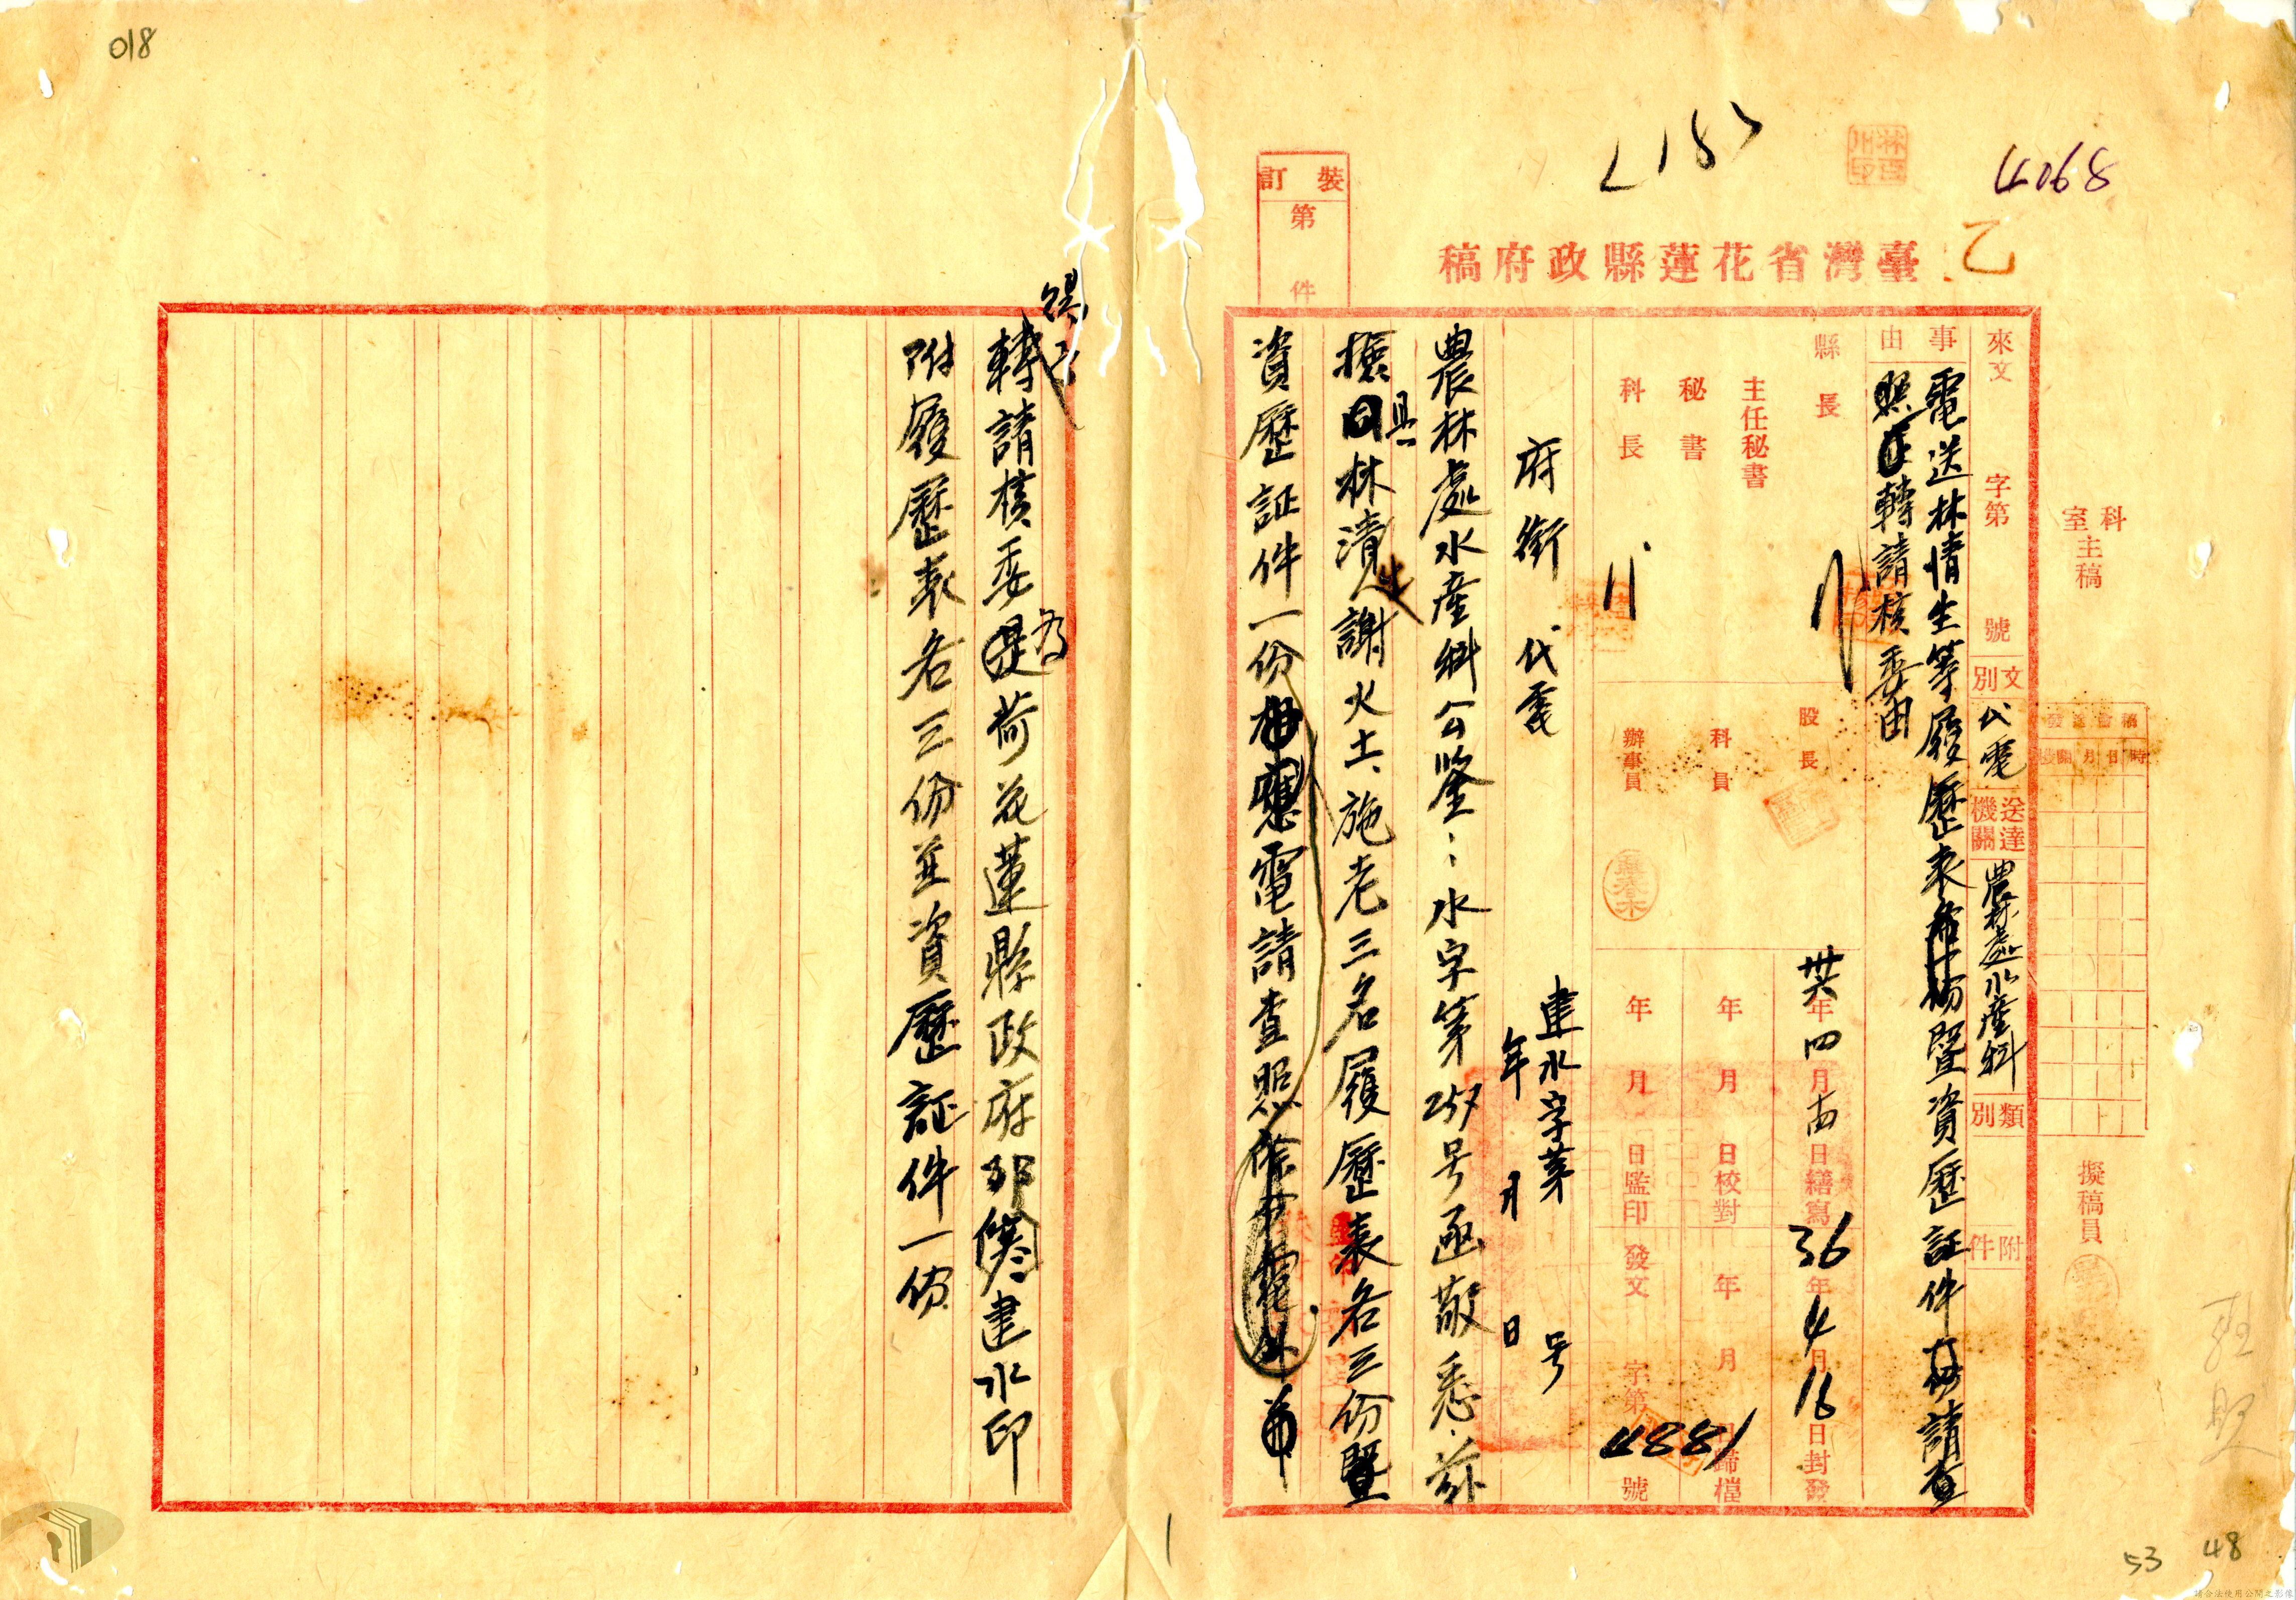 018
4068
乙
臺灣省花蓮縣政府稿
裝訂
第 件
科室主稿
擬稿員
來文 字第 號
文別 代電
送達機關 農林處水產科
類別
附件
事由
電送林清生等履歷表暨資歷証件 請查
照 轉請核委由
縣長
主任秘書
秘書
科長
股長
科員
辦事員
卅六年四月 日繕寫
36年4月16日封發
年 月 日校對
年 月 日歸檔
年 月 日監印
發文 字第 4881 號
府銜代電
建水字第 号
年 月 日
農林處水產科公鑒：水字第257号函敬悉茲
擬具林清生謝火土、施老三名履歷表各三份暨
資歷証件一份電請查照
轉請核委為荷花蓮縣政府 建水印
附履歷表各三份並資歷証件一份
53
48
請合法使用公開之影像